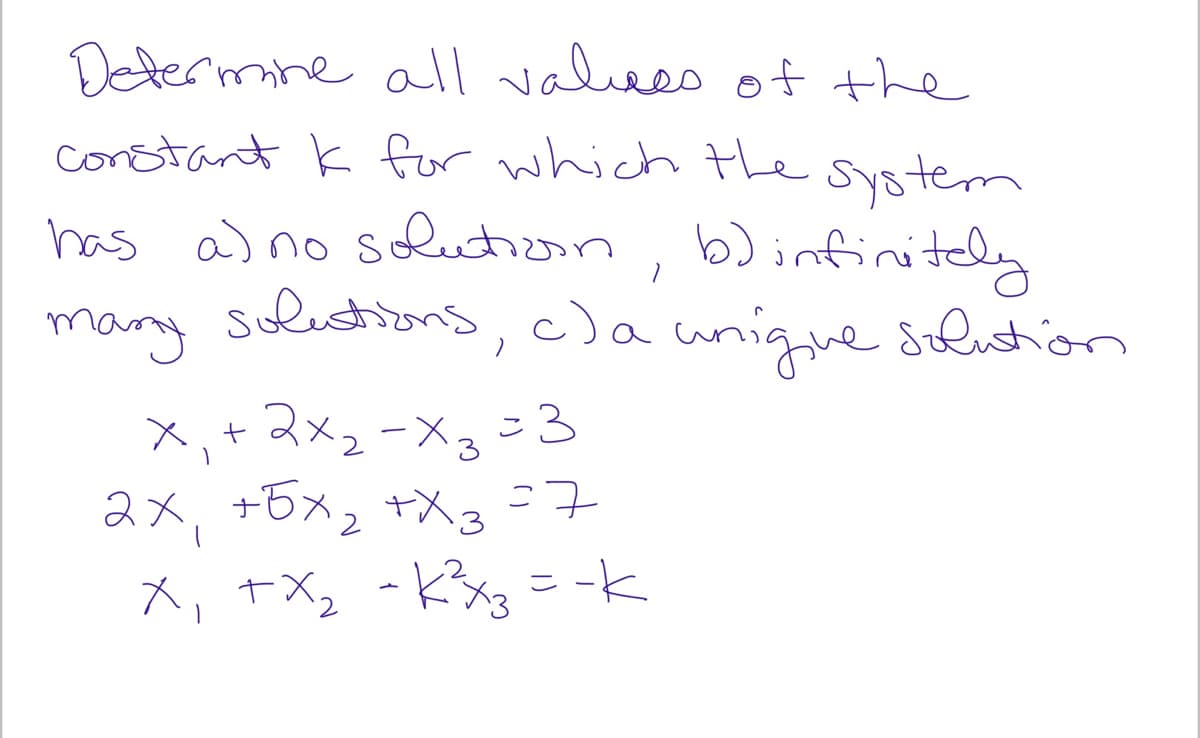 Determine all values of the
constant k for which the system
has a) no solution, b) infinitely
many solutions, c) a unique solution
x₁ + 2x₂ - x₃ = 3
2x₁ + 5x₂ + x₃ = 7
x₁ + x₂ - k²x₃ = -k